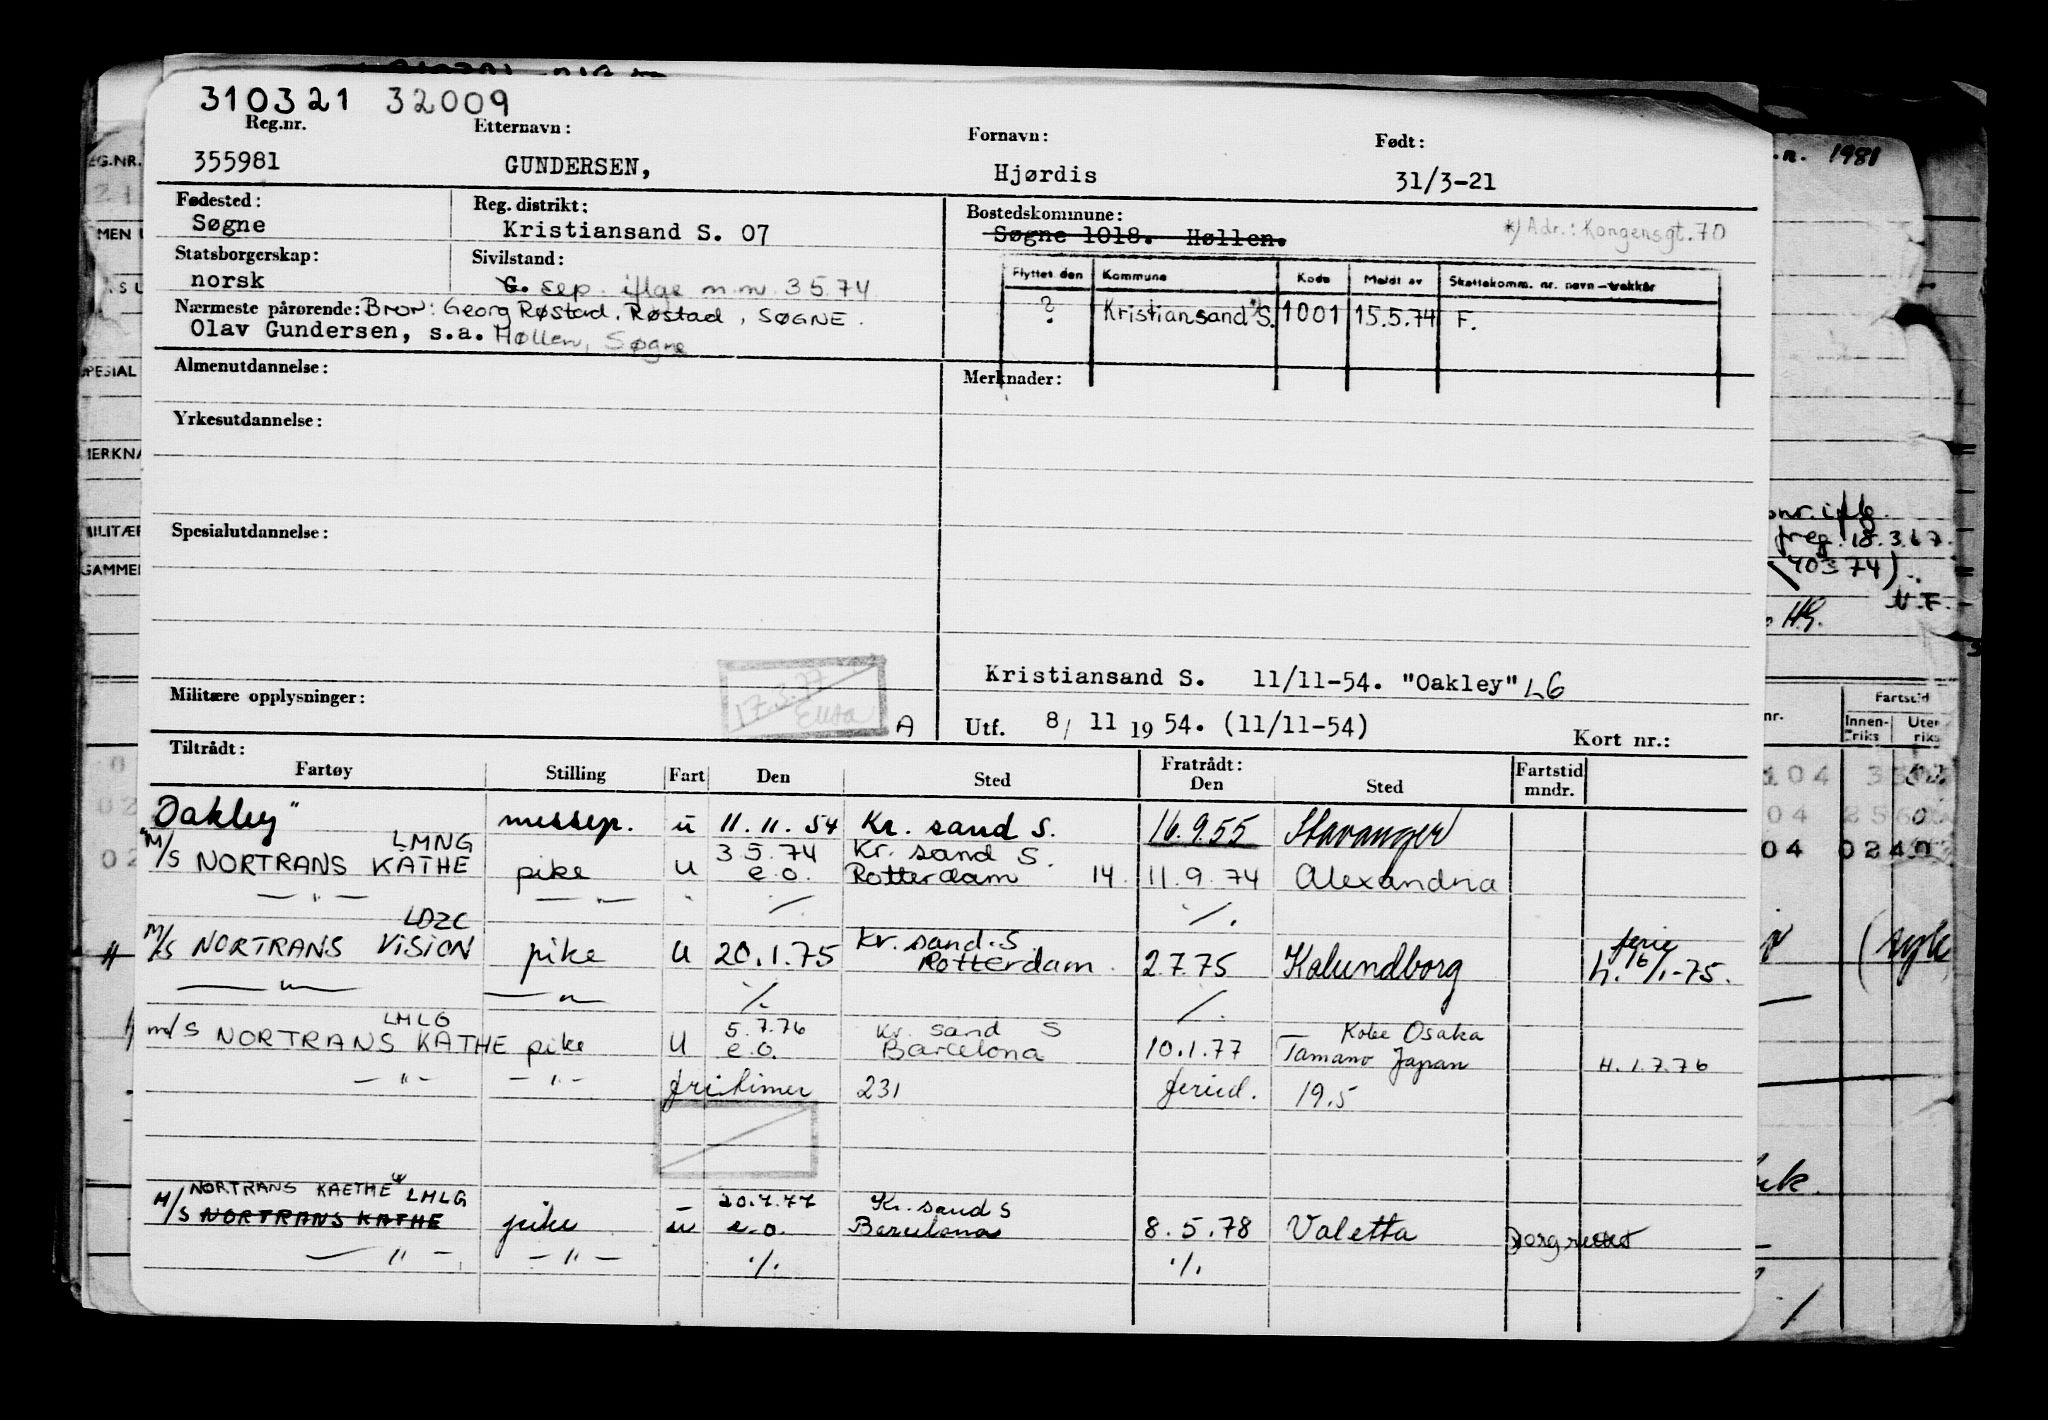 310321 32009
Reg.nr. Etternavn: Fornavn: Født:
355981 GUNDERSEN, Hjørdis 31/3-21
Fødested: Reg. distrikt: Bostedskommune:
Søgne Kristiansand S. 07 Søgne 1018. Høllen. *) Adr.: Kongensgt. 70
Statsborgerskap: Sivilstand:
norsk G. sep. iflge m.m. 3.5.74
Flyttet den Kommune Kode Meldt av Skattekomm. nr. navn-trekkår
? Kristiansand *) S. 1001 15.5.74 F.
Nærmeste pårørende: Bror: Georg Røstad, Røstad, SØGNE.
Olav Gundersen, s.a. Høllen, Søgne
Almenutdannelse: Merknader:
Yrkesutdannelse:
Spesialutdannelse:
Kristiansand S. 11/11-54. "Oakley" LG
17.3.77
Militære opplysninger: A Utf. 8/ 11 1954. (11/11-54) Kort nr.:
Tiltrådt: Fratrådt: Fartstid
Fartøy Stilling Fart Den Sted Den Sted mndr.
"Oakley" messep. u 11.11.54 Kr. sand S. 16.9.55 Stavanger
LMNG 3.5.74 Kr. sand S.
M/S NORTRANS KATHE pike U e.o. Rotterdam 14. 11.9.74 Alexandria
— " — — " — " ./. ./.
LDZC Kr. sand. S. ferie
M/S NORTRANS VISION pike U 20.1.75 Rotterdam. 2.7.75 Kalundborg h. 16/1-75.
— " — — " — ./. ./.
LMLG 5.7.76 Kr. sand S Kobe Osaka
m/S NORTRANS KATHE pike U e.o. Barcelona 10.1.77 Tamano Japan H. 1.7.76
— " — — " — fritimer 231 feried. 19.5
NORTRANS KAETHE LMLG 20.7.77 Kr. sand S
M/S NORTRANS KATHE pike u e.o. Barcelona 8.5.78 Valetta
— " — — " — ./. ./.